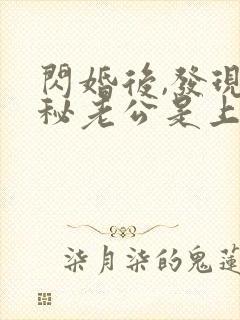 閃婚後,發現
秘老公是上
柒月柒的鬼蓮